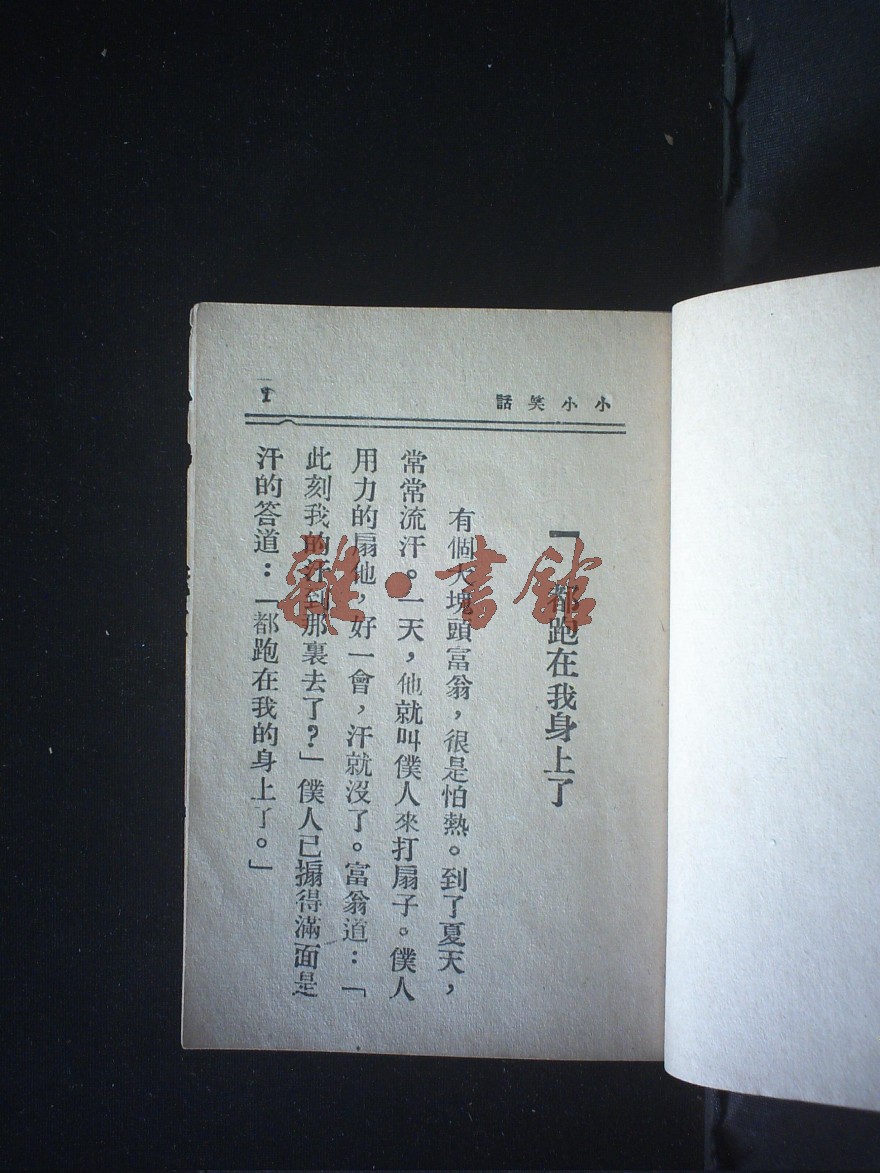 小小笑話
1
一 都跑在我身上了
有個大塊頭富翁，很是怕熱。到了夏天，
常常流汗。一天，他就叫僕人來打扇子。僕人
用力的扇他，好一會，汗就沒了。富翁道：「
此刻我的汗到那裏去了？」僕人已搧得滿面是
汗的答道：「都跑在我的身上了。」
雜·書館